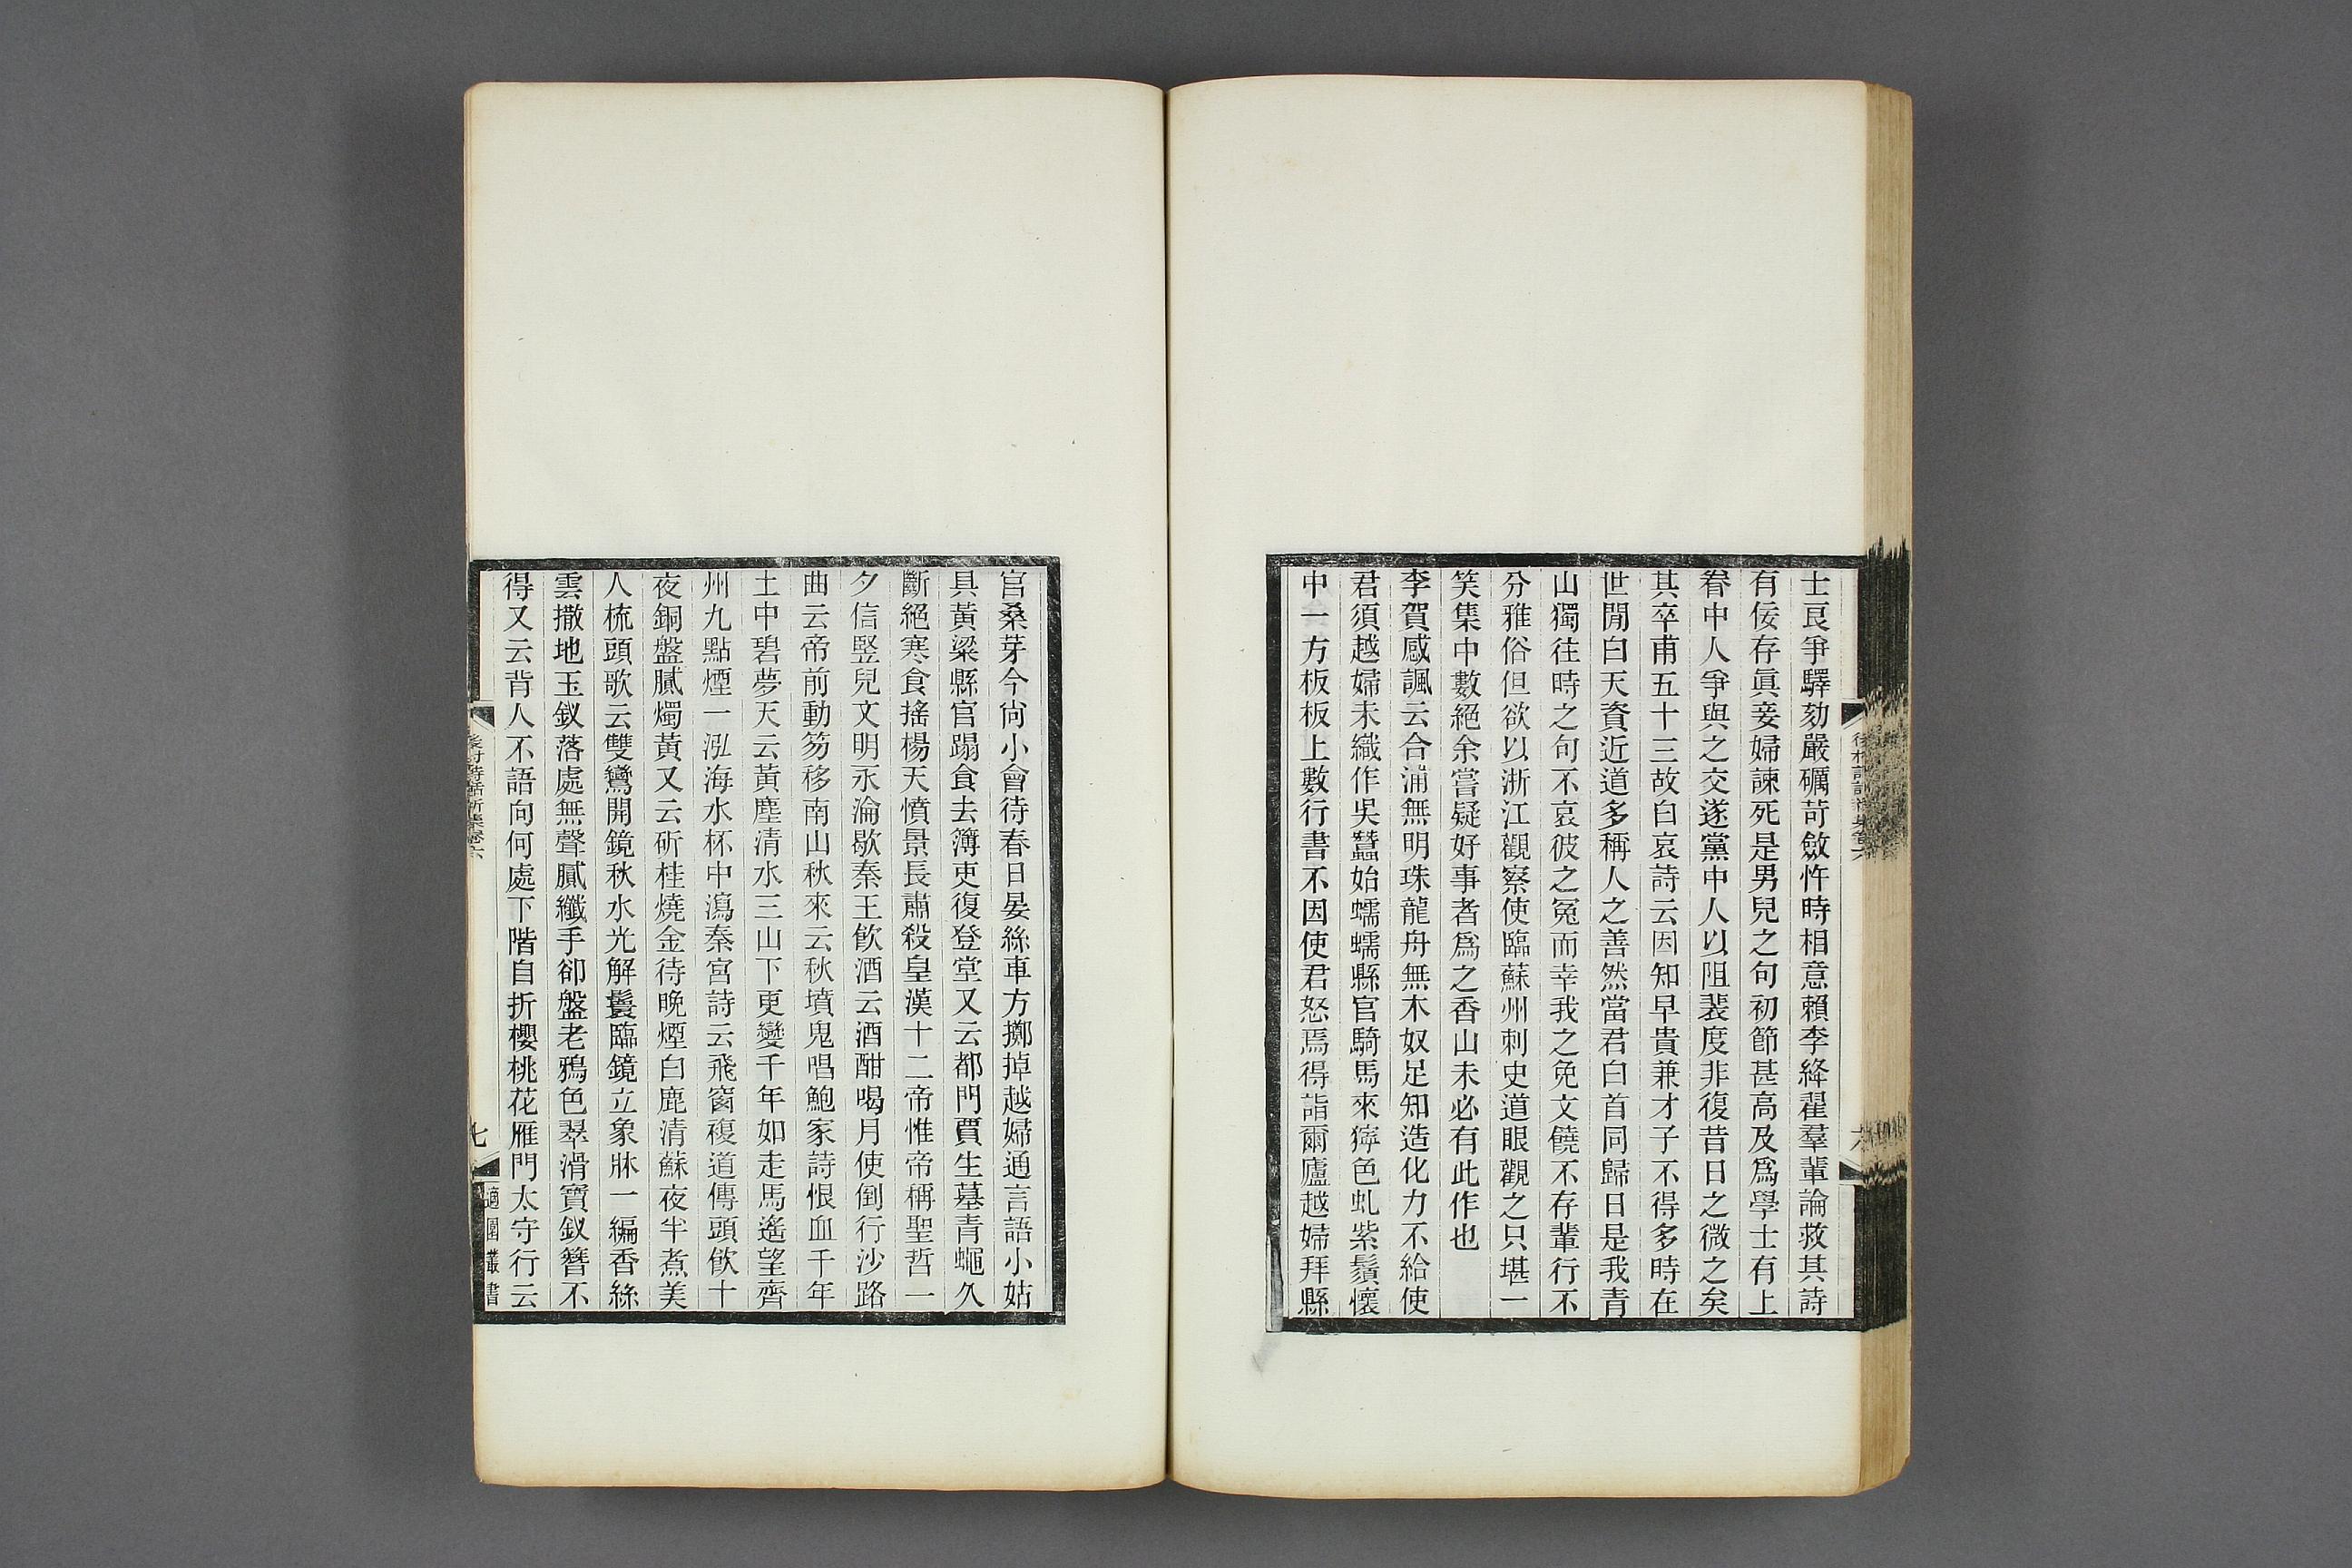 士良爭驛劾嚴礪苛斂忤時相意賴李絳翟羣輩論救其詩
有佞存眞妾婦諫死是男兒之句初節甚高及爲學士有上
眷中人爭與之交遂黨中人以阻裴度非復昔日之微之矣
其卒甫五十三故白哀詩云因知早貴兼才子不得多時在
世閒白天資近道多稱人之善然當君白首同歸日是我青
山獨往時之句不哀彼之冤而幸我之免文饒不存輩行不
分雅俗但欲以浙江觀察使臨蘇州刺史道眼觀之只堪一
笑集中數絕余嘗疑好事者爲之香山未必有此作也
李賀感諷云合浦無明珠龍舟無木奴足知造化力不給使
君須越婦未織作吳蠶始蠕蠕縣官騎馬來獰色虬紫鬚懷
中一方板板上數行書不因使君怒焉得詣爾廬越婦拜縣
六
官桑芽今尙小會待春日晏絲車方擲掉越婦通言語小姑
具黃粱縣官蹋食去簿吏復登堂又云都門賈生墓青蠅久
斷絕寒食搖楊天憤景長肅殺皇漢十二帝惟帝稱聖哲一
夕信豎兒文明永淪歇秦王飮酒云酒酣喝月使倒行沙路
曲云帝前動笏移南山秋來云秋墳鬼唱鮑家詩恨血千年
土中碧夢天云黃塵清水三山下更變千年如走馬遙望齊
州九點煙一泓海水杯中瀉秦宮詩云飛窗複道傳頭飮十
夜銅盤膩燭黃又云斫桂燒金待晚煙白鹿清蘇夜半煮美
人梳頭歌云雙鸞開鏡秋水光解鬟臨鏡立象牀一編香絲
雲撒地玉釵落處無聲膩纖手卻盤老鴉色翠滑寶釵簪不
得又云背人不語向何處下階自折櫻桃花雁門太守行云
後村詩話新集卷六
七
適園叢書